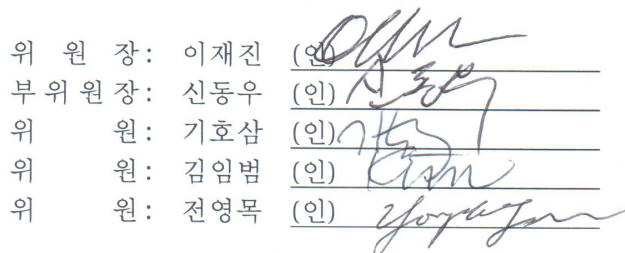 위 원 장: 이재진 (인)
부 위 원 장: 신동우 (인) 신동우
위 원: 기호삼 (인)
위 원: 김임범 (인)
위 원: 전영목 (인)